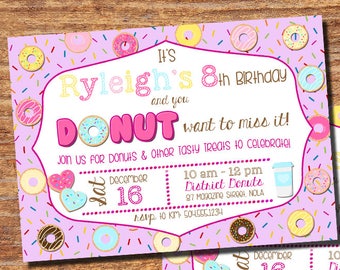 It's
Ryleigh's 8th Birthday
and you
DONUT want to miss it!
Join us for donuts & other tasty treats to celebrate!
Sat
December
16
10 am - 12 pm
District Donuts
rsvp to Kim 504.555.1234